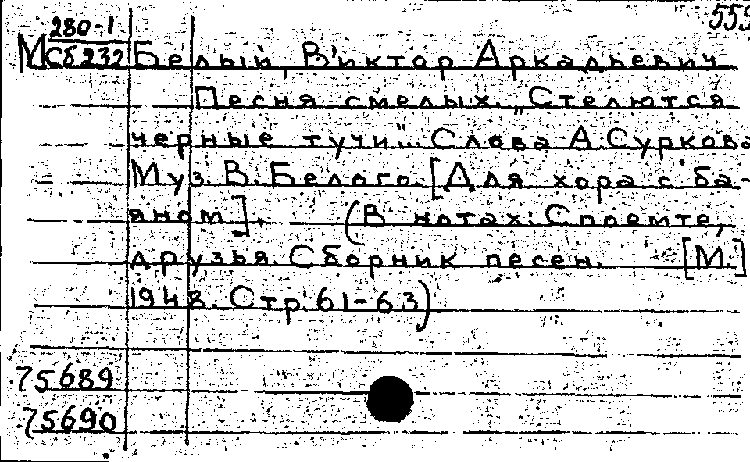 559
280-1
М Сб 232 Белый, Виктор Аркадьевич
Песня смелых. „Стелются
черные тучи"... Слова А. Суркова
Муз. В. Белого. [Для хора с ба-
яном]. (В нотах: Споемте,
друзья. Сборник песен. [М.]
1948. Стр. 61-63)
75689
75690